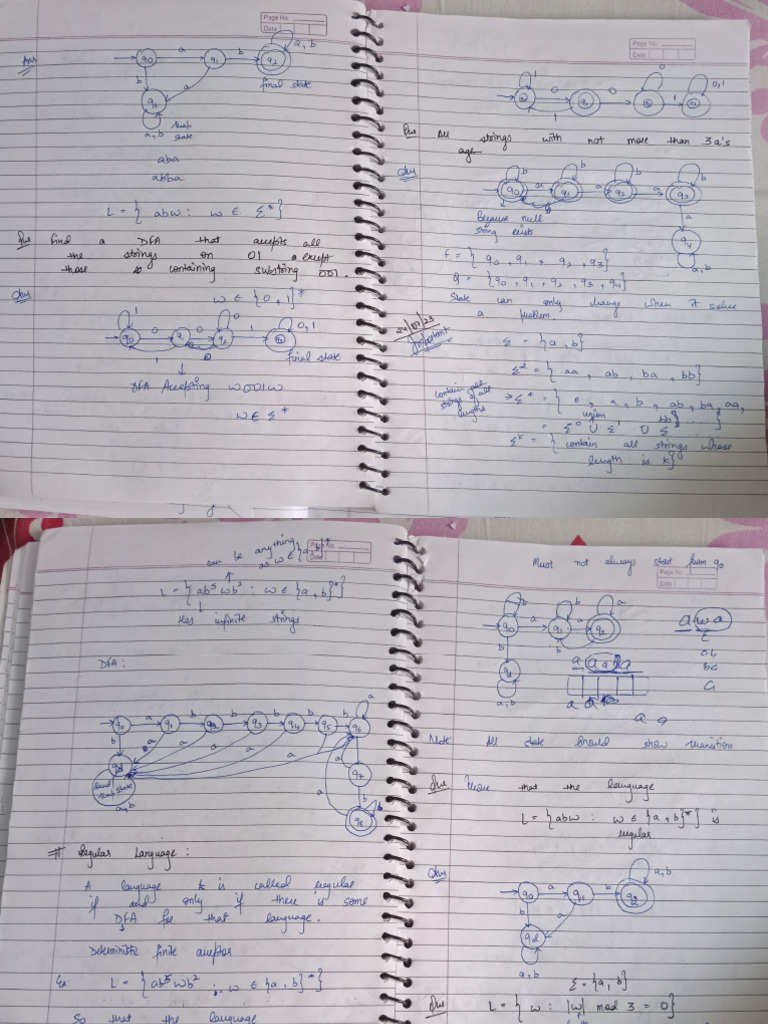 Page No.
Date
Ans
q0 a q1 b q2 a, b
b a final state
qt
a, b trap state
aba
abba
L = { abw : w ε Σ* }
Que Find a DFA that accepts all
the strings on 01 except
those containing substring 001.
Ans w ε {0, 1}*
1 0 0, 1
q0 0 q1 0 1
1 final state
DFA Accepting w001w
w ε Σ*
Page No.
Date
1 0 0,1
0 0 1
1
Que All strings with not more than 3 a's
Ans b b b b
q0 a q1 a q2 a q3
Because null a
string exists q4
F = { q0, q1, q2, q3 } a, b
Q = { q0, q1, q2, q3, q4 }
State can only change when it solves
a problem.
Important
Σ = {a, b}
Σ² = { aa, ab, ba, bb }
contain all strings of all lengths → Σ* = { ε, a, b, ab, ba, aa,
bb ..... }
union
= Σ⁰ ∪ Σ¹ ∪ Σ
Σᵏ = { contain all strings whose
length is k }
can be anything
as w ε {a, b}*
Page No.
Date
L = { ab⁵wb² : w ε {a, b}* }
Has infinite strings
DFA :
q0 a q1 b q2 b q3 b q4 b q5 b q6 a
b a a a a a b
qd q7
trap state b
a, b q8 b
# Regular Language :
A language is called regular
if and only if there is some
DFA for that language.
Deterministic finite acceptor
Ex L = { ab⁵wb² : w ε {a, b}* }
So that the language
Must not always start from q0
Page No.
Date
b b a
q0 a q1 a q2
b b
qd
a, b
a w a
a a
Note All state should show transition
Que Show that the language
L = { abw : w ε {a, b}* } is
regular
Ans a, b
q0 a q1 b q2
b a
qd
a, b Σ = {a, b}
Que L = { w : |w| mod 3 = 0 }